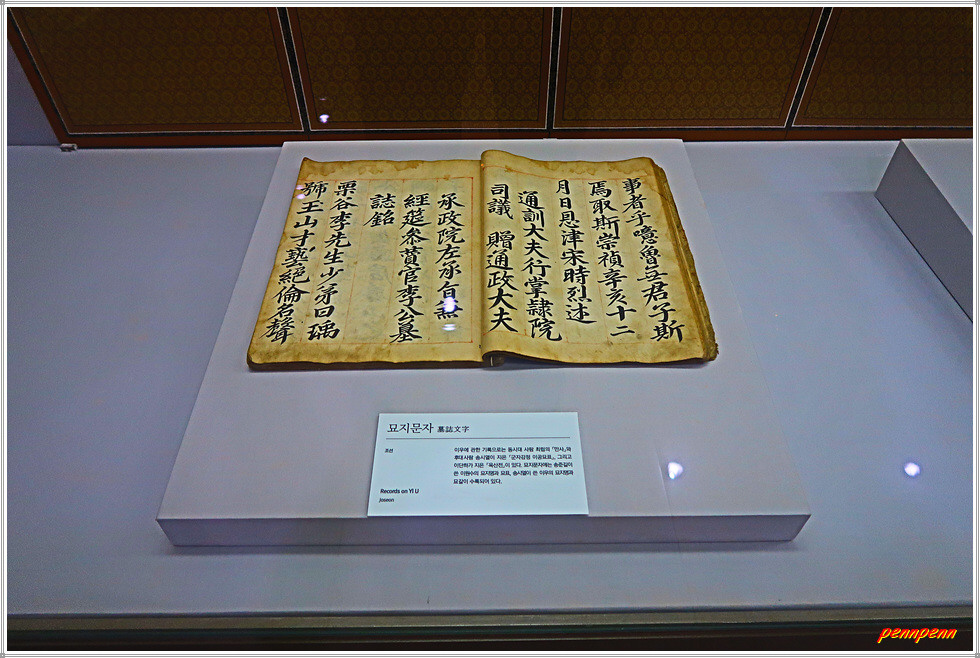 事者乎噫魯无君子斯
焉取斯崇禎辛亥十二
月日恩津宋時烈述
通訓大夫行掌隷院
司議 贈通政大夫
承政院左承旨兼
經筵參贊官李公墓
誌銘
栗谷李先生少弟曰瑀
號玉山才藝絕倫名聲
묘지문자 墓誌文字
조선
이우에 관한 기록으로는 동시대 사람 최립의 「만사」와
후대 사람 송시열이 지은 「군자감정 이공묘표」, 그리고
이단하가 지은 「옥산전」이 있다. 묘지문자에는 송준길이
쓴 이원수의 묘지명과 묘표, 송시열이 쓴 이우의 묘지명과
묘갈이 수록되어 있다.
Records on YI U
Joseon
pennpenn